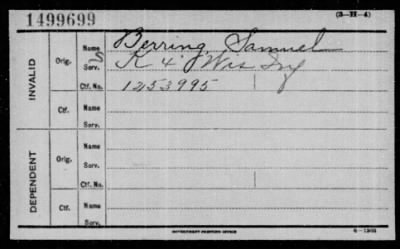 1499699 (3-H-4)
INVALID
Orig. Name Berring, Samuel
Serv. K 4" Wis Inf
Ctf. No. 1253995
Ctf. Name
Serv.
DEPENDENT
Orig. Name
Serv.
Ctf. No.
Ctf. Name
Serv.
GOVERNMENT PRINTING OFFICE